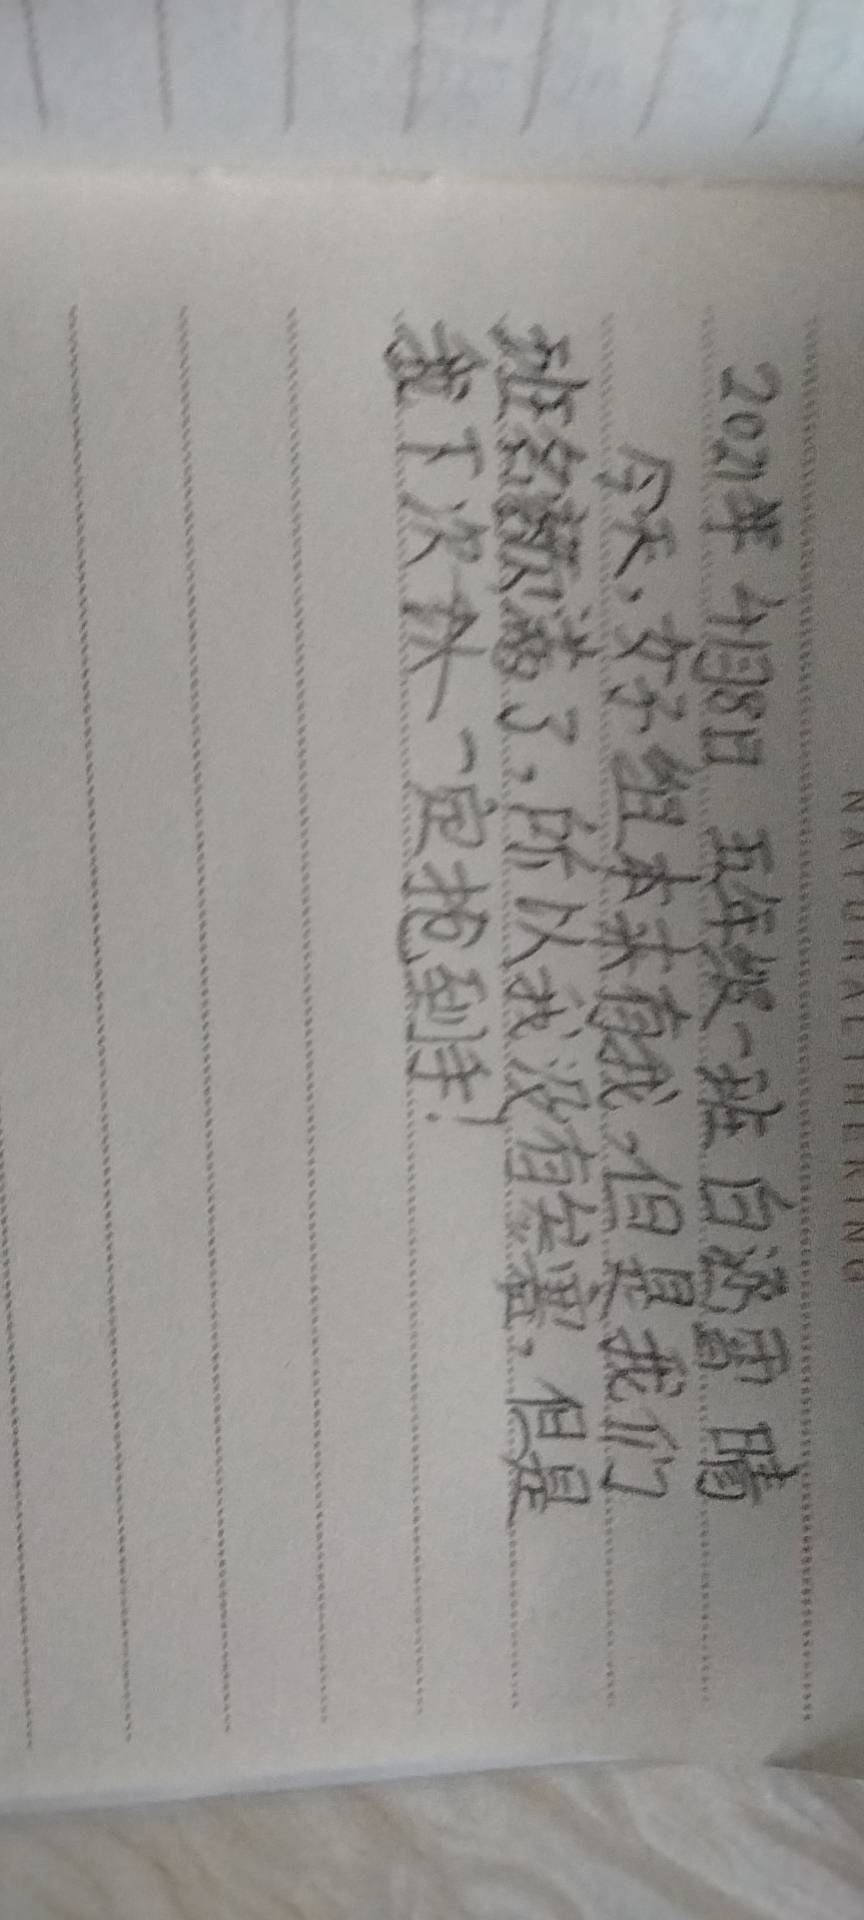 NATURALTHERING
2021年4月8日 五年级一班 白泌雷 晴
今天,好子组本来有我,但是我们
班名额满了,所以我没有实害,但是
我下次补一定抱到手!